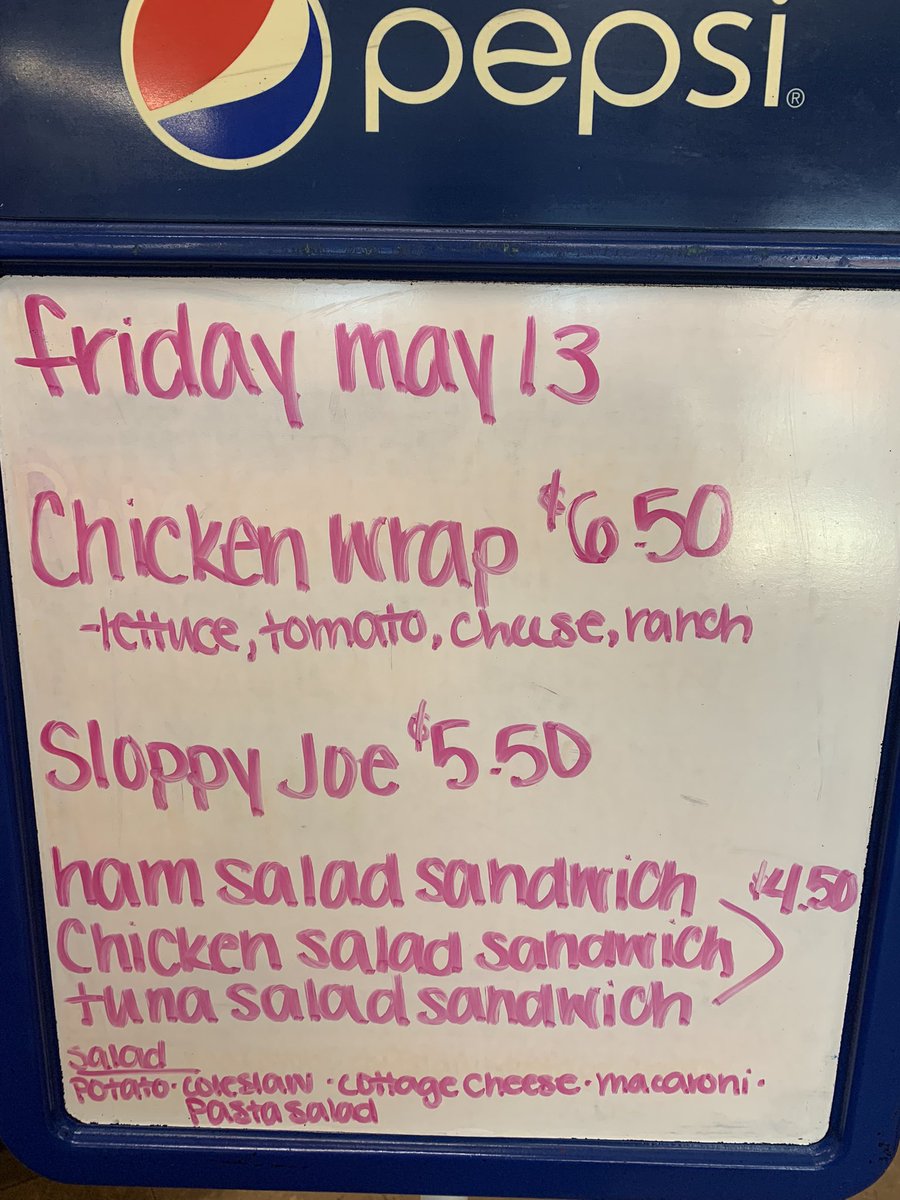 pepsi®
friday may 13
Chicken wrap $6.50
-lettuce, tomato, cheese, ranch
Sloppy Joe $5.50
ham salad sandwich $4.50
Chicken salad sandwich
tuna salad sandwich
salad
Potato · coleslaw · cottage cheese · macaroni ·
Pasta salad